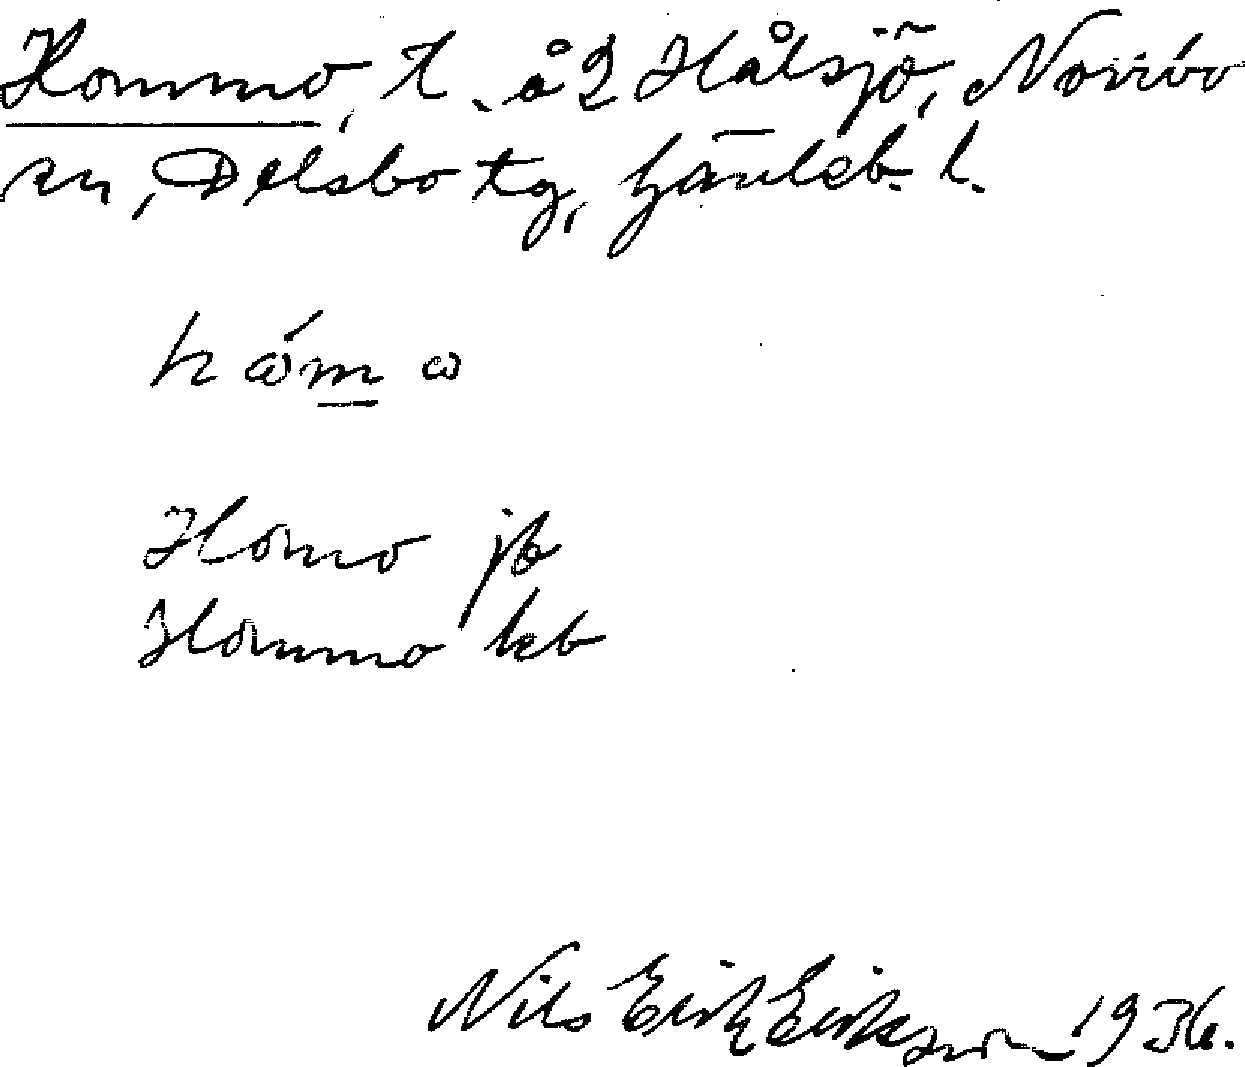 Hommo, t. å 2 Hålsjö, Norrbo
sn, Delsbo tg, Gävleb. l.
hώmω
Homo jb
Hommo kb
Nils Erik Eriksson 1936.